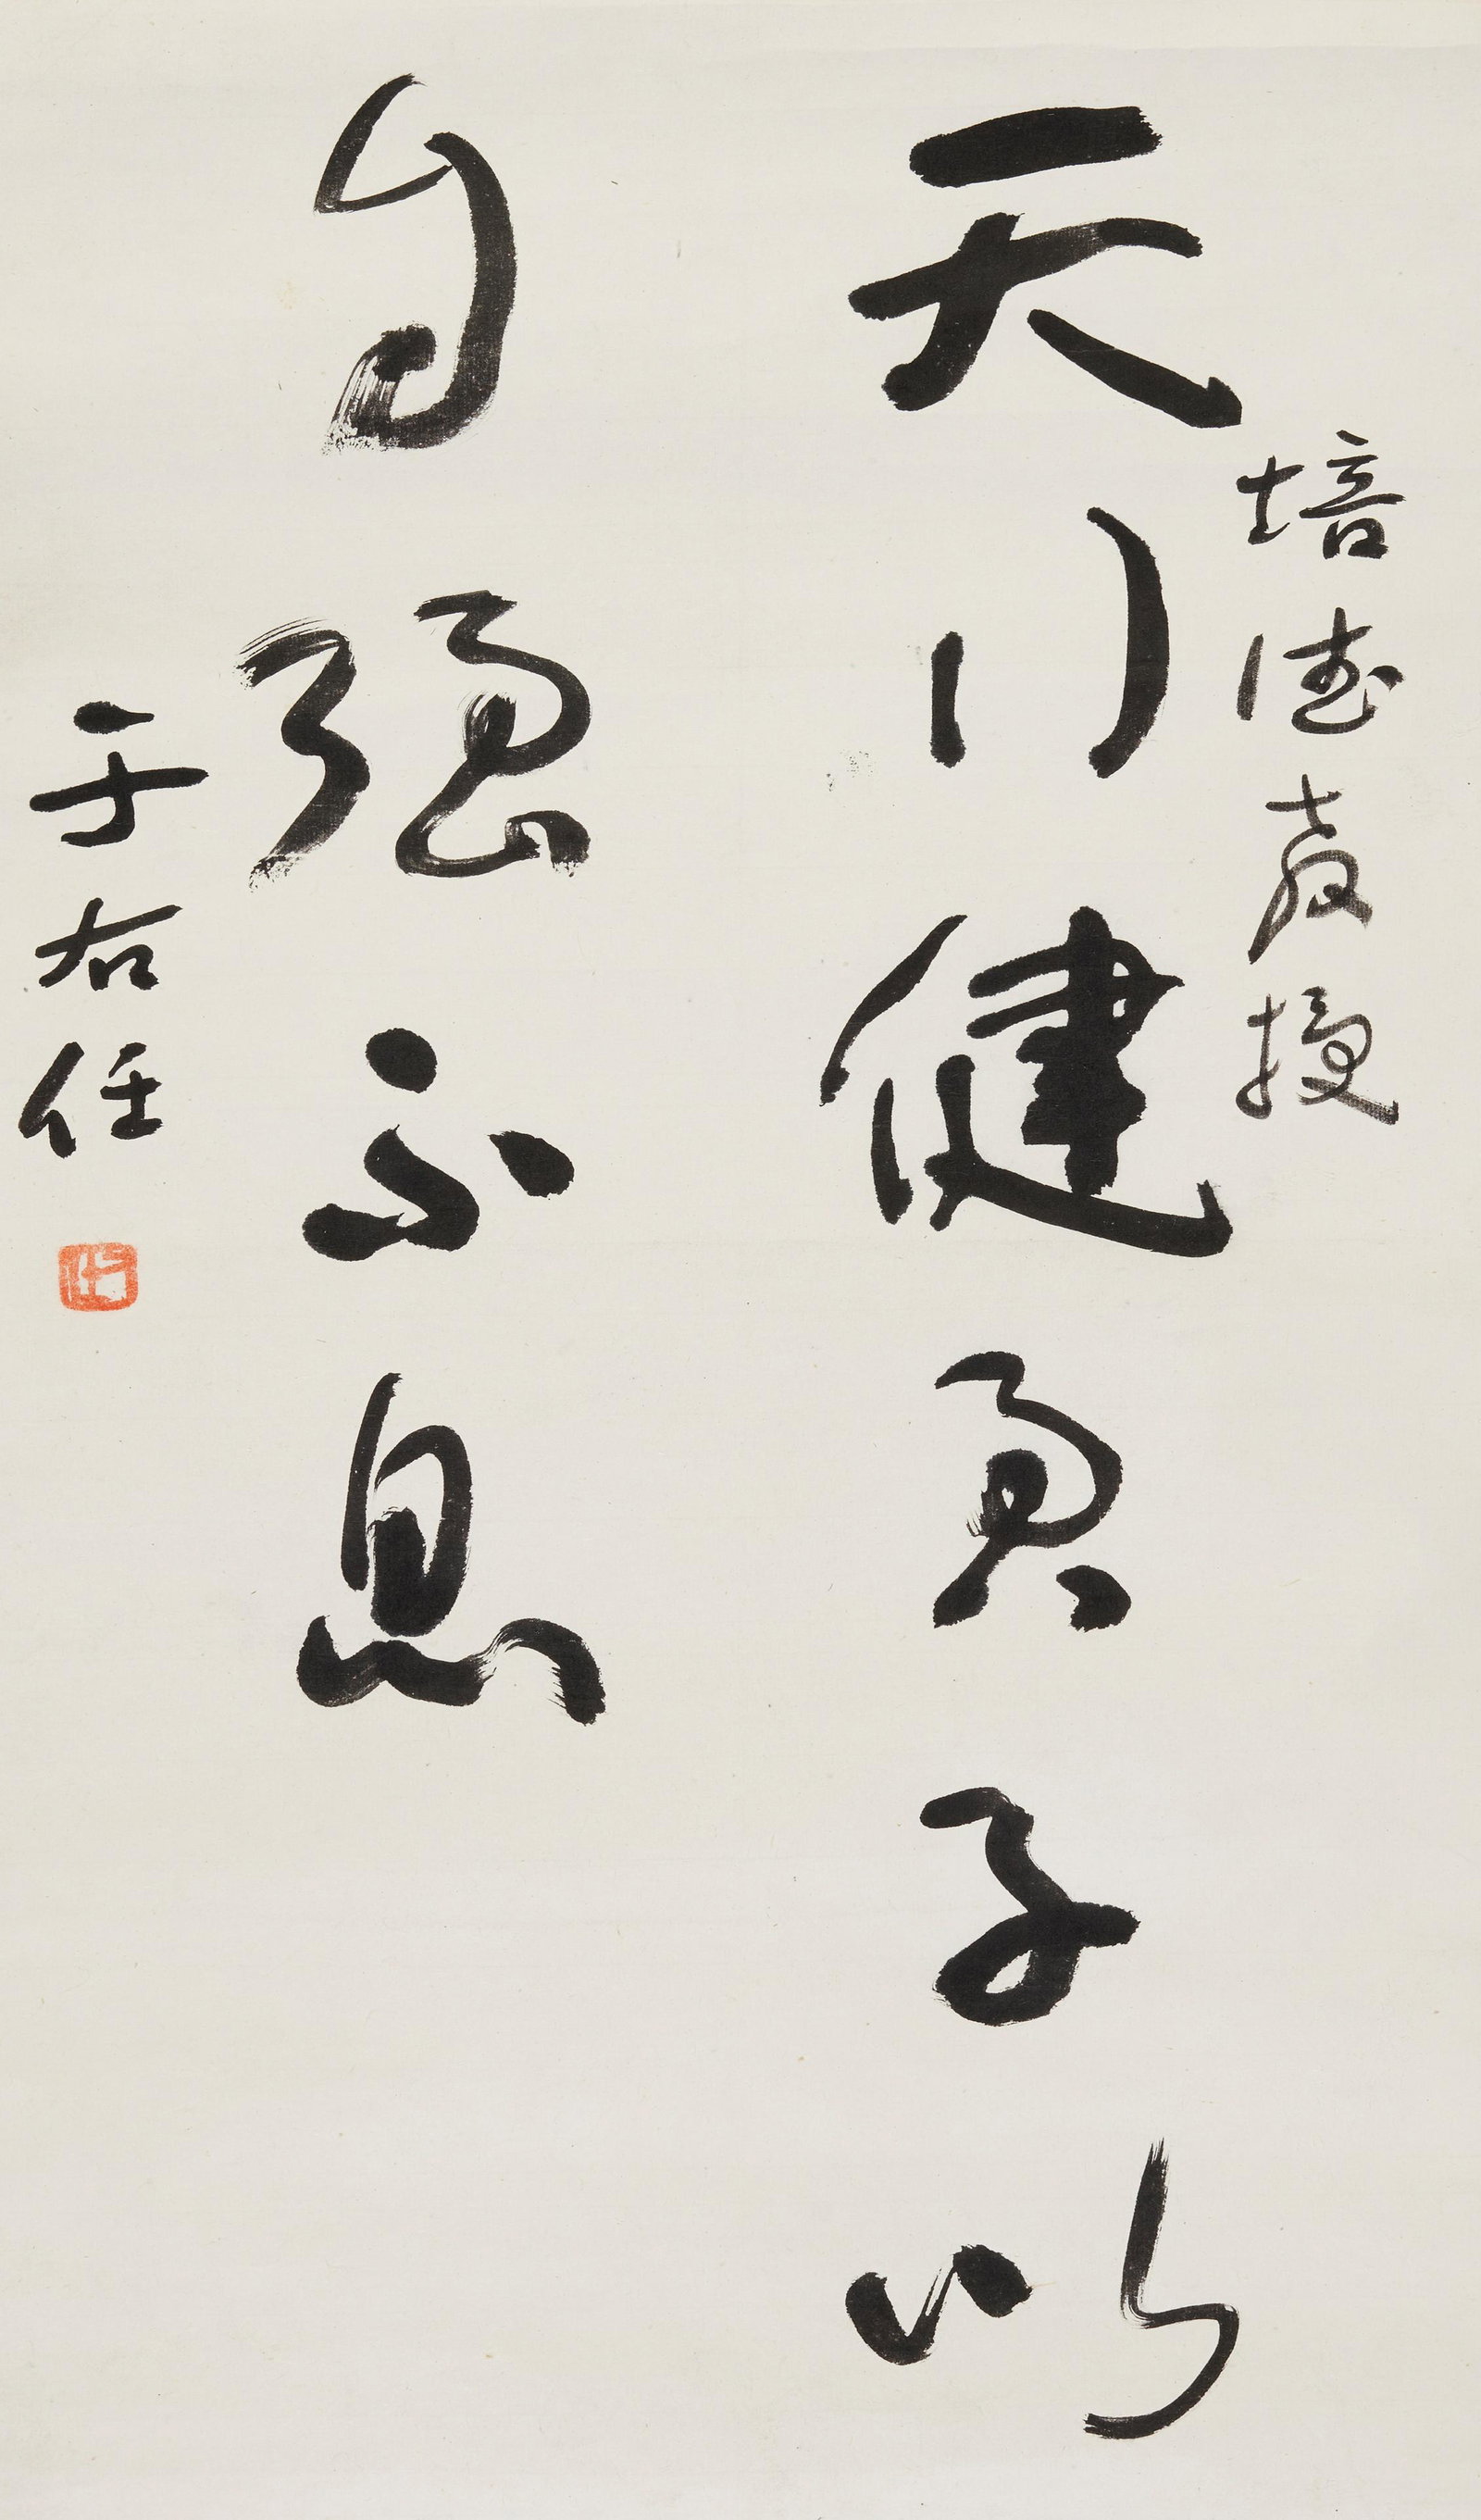 培德教授
天行健君子以
自强不息
于右任